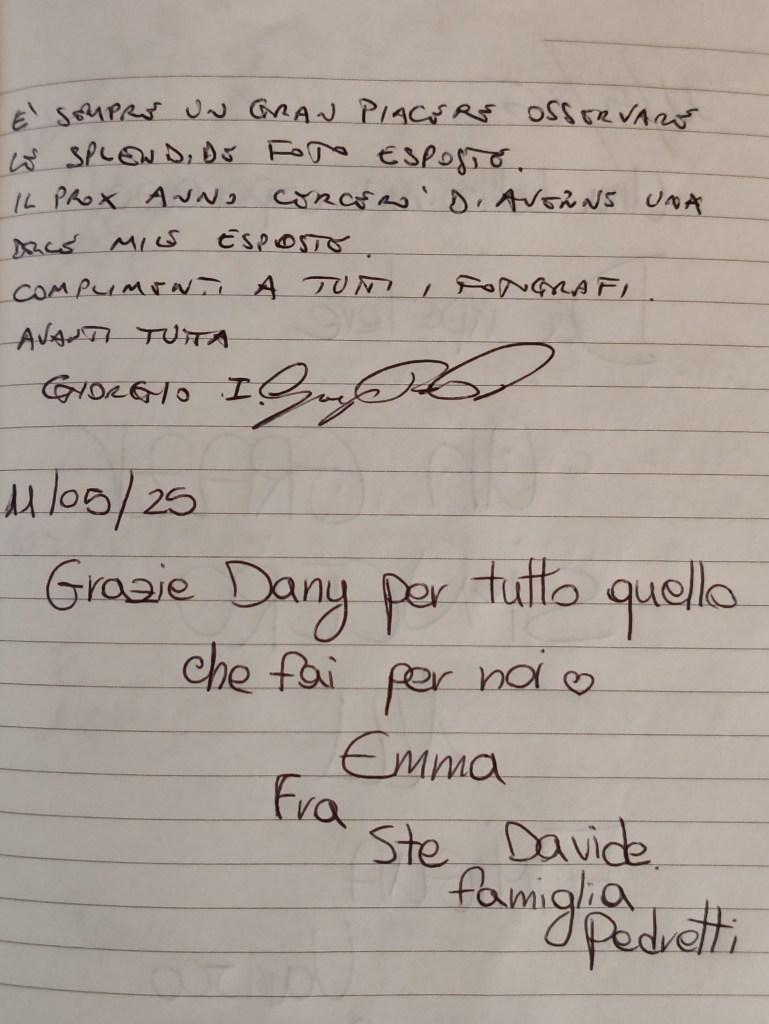 E' SEMPRE UN GRAN PIACERE OSSERVARE
LE SPLENDIDE FOTO ESPOSTE.
IL PROX ANNO CERCERO' DI AVERNE UNA
DELLE MIE ESPOSTE.
COMPLIMENTI A TUTTI I FOTOGRAFI.
AVANTI TUTTA
GIORGIO I.
11/05/25
Grazie Dany per tutto quello
che fai per noi ♡
Emma
Fra
Ste Davide.
famiglia
Pedretti